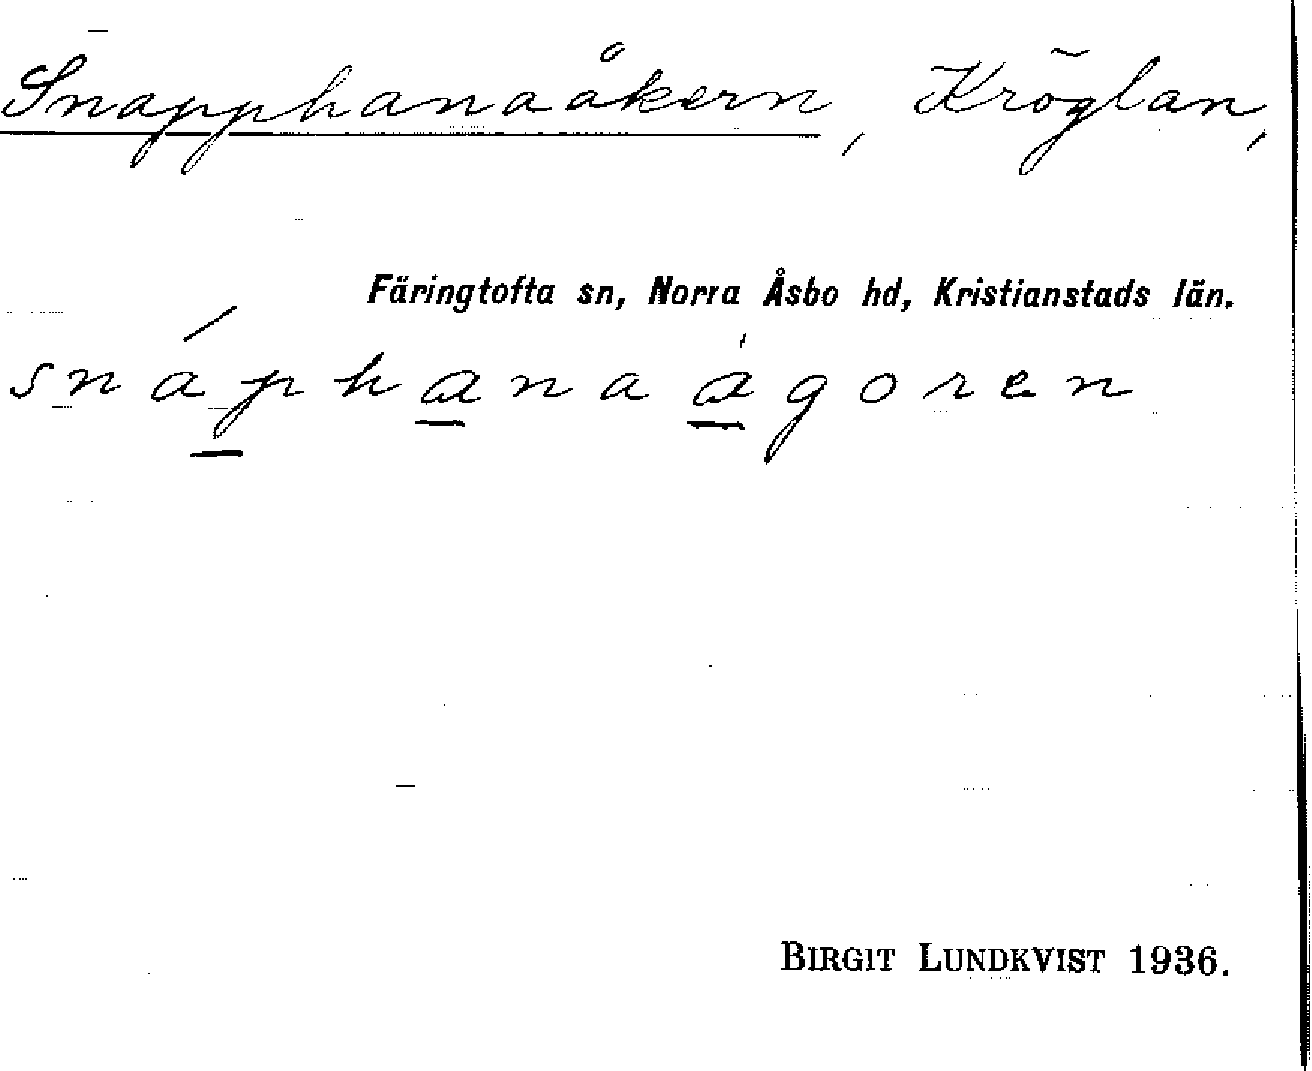 Snapphanaåkern, Kröglan,
Färingtofta sn, Norra Åsbo hd, Kristianstads län.
snáphana ágoren
BIRGIT LUNDKVIST 1936.